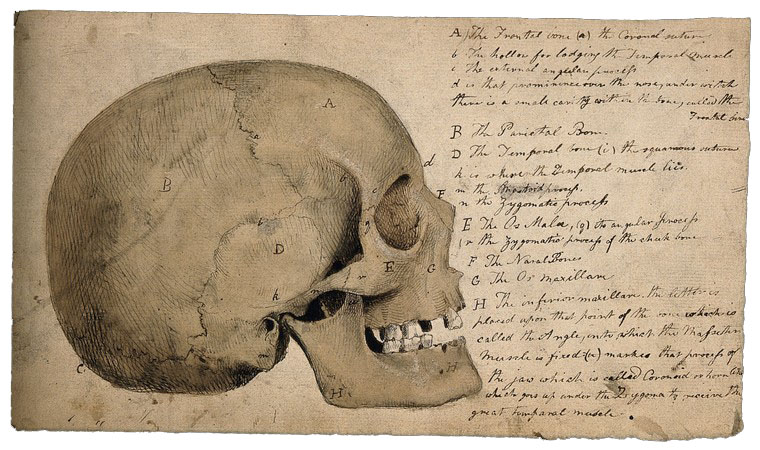 A) The Frontal bone (a) the Coronal suture
b The hollow for lodging the Temporal muscle
c the external angular process
d is that prominence over the nose, under which
there is a small cavity within the bone, called the
Frontal Sin
B The Parietal Bone.
D The Temporal bone (i) the squamous suture
k is where the Temporal muscle lies.
m the Mastoid process.
n the Zygomatic process
E The Os Malæ, (q) its angular process
r the Zygomatic process of the cheek bone
F The Nasal Bones
G The Os maxillare
H The inferior maxillare the letter is
placed upon that point of the bone which is
called the Angle, into which the Masseter
Muscle is fixed marks that process of
the jaw which is called Coronoid or horn like
which goes up under the Zygoma to receive the
great temporal muscle
A
B
D
E
F
G
H
H
C
b
c
d
g
b
k
n
r